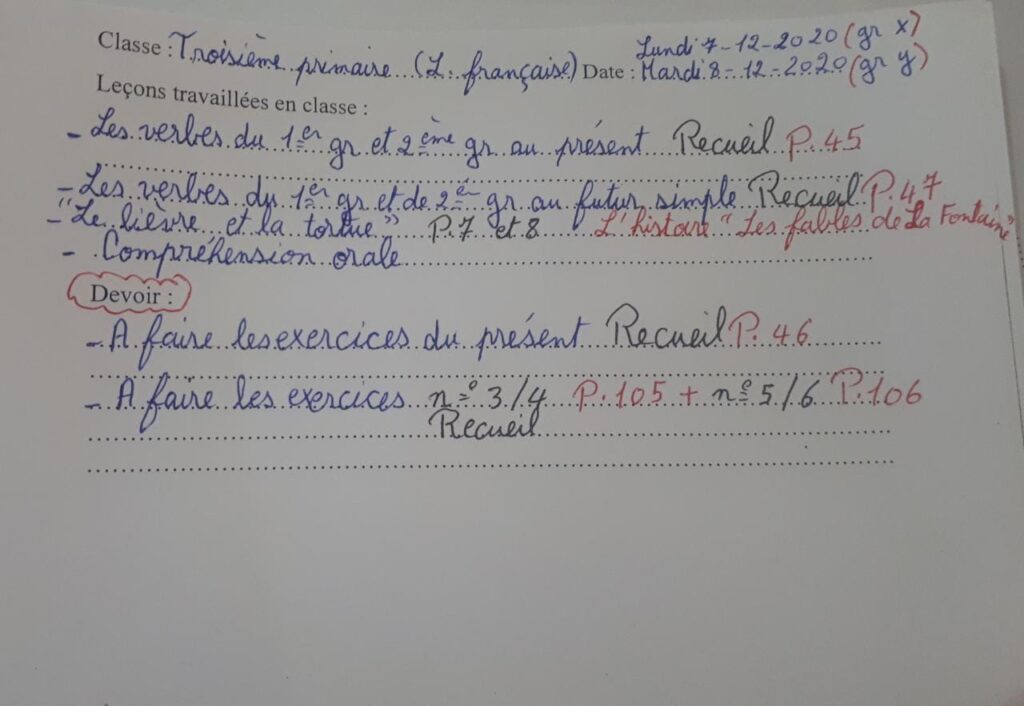 Lundi 7-12-2020 (gr x)
Classe : Troisième primaire (L. française) Date : Mardi 8-12-2020 (gr y)
Leçons travaillées en classe :
- Les verbes du 1er gr et 2ème gr au présent Recueil P.45
- Les verbes du 1er gr et de 2è gr au futur simple Recueil P.47
- "Le lièvre et la tortue" P.7 et 8 L'histoire "Les fables de La Fontaine"
- Compréhension orale
Devoir :
- A faire les exercices du présent Recueil P.46
- A faire les exercices n° 3/4 P.105 + n° 5/6 P.106
Recueil